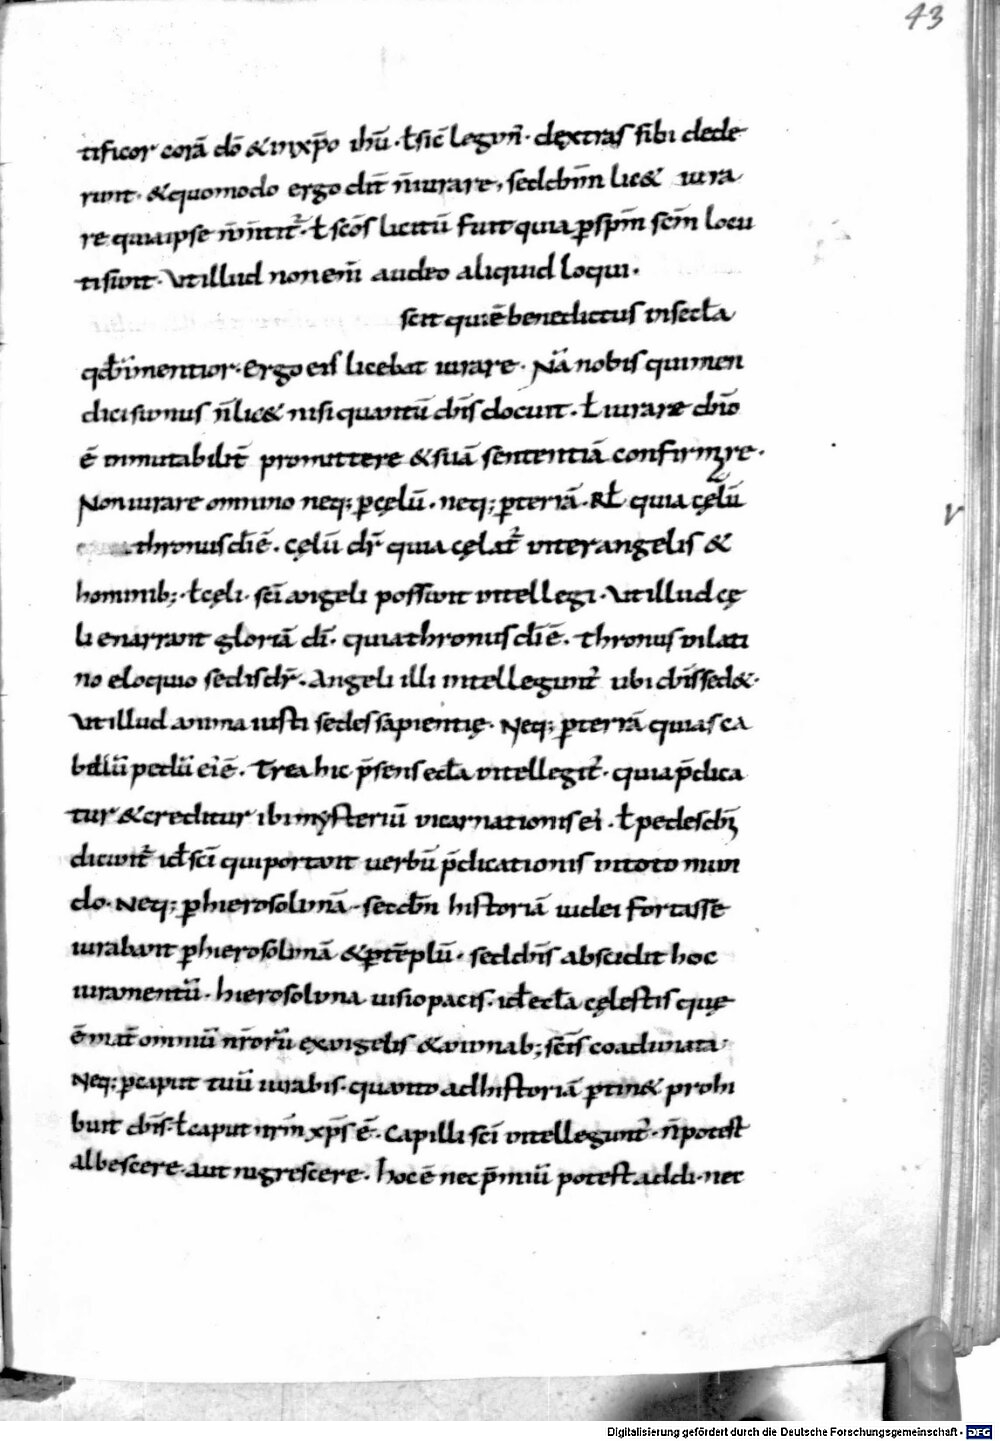 43
tificor corā dō & inxp̄o ihū · ł sic̄ legunt̄ · dextras sibi dede
runt · & quomodo ergo dn̄t n̄ iurare, sed dn̄m lic& iura
re quia ipse n̄ mentit᷑ · ł scōs licitū fuit quia p̄ spm̄ scm̄ locu
ti sunt · Ut illud non enī audeo aliquid loqui ·
scit qui ē benedictus in secła
qd̄ n̄ mentior · Ergo eis licebat iurare · Nā nobis qui men
dici sumus n̄ lic& nisi quantū dn̄s docuit · ł iurare dn̄o
ē inmutabilit̄ promittere & suā sententiā confirmare ·
Non iurare omnino neq; p̄ cęlū · neq; p̄ terrā · Rł quia cęlū
thronus dī ē · Cęlū dr̄ quia cęlat᷑ inter angelis &
hominib; · ł cęli · scī angeli possunt intellegi · Ut illud cę
li enarrant gloriā dī · quia thronus dī ē · Thronus in lati
no eloquio sedis dr̄ · Angeli illi intellegunt᷑ ubi dn̄s sed& ·
Ut illud anima iusti sedes sapientię · Neq; p̄ terrā quia sca
bellū pedū eī ē · Trea hic p̄sens ecła intellegit᷑ · quia p̄dica
tur & creditur ibi mysteriū incarnationis eī · ł pedes dn̄i
dicunt᷑ id scī qui portant uerbū p̄dicationis in toto mun
do · Neq; p̄ hierosolimā · secdm̄ historiā iudei fortasse
iurabant p̄ hierosolimā & p̄ tēplū · sed dn̄s abscidit hoc
iuramentū · hierosolima uisio pacis · id ecła cęlestis quę
ē mat̄ omniū nr̄orū ex angelis & animab; scīs coadunata ·
Neq; p̄ caput tuū iurabis · quanto ad historiā p̄tin& prohi
buit dn̄s · ł caput nrm̄ xp̄s ē · Capilli scī intellegunt᷑ · n̄ potest
albescere aut nigrescere · hoc ē nec p̄miū potest addi · nec
v
Digitalisierung gefördert durch die Deutsche Forschungsgemeinschaft - DFG